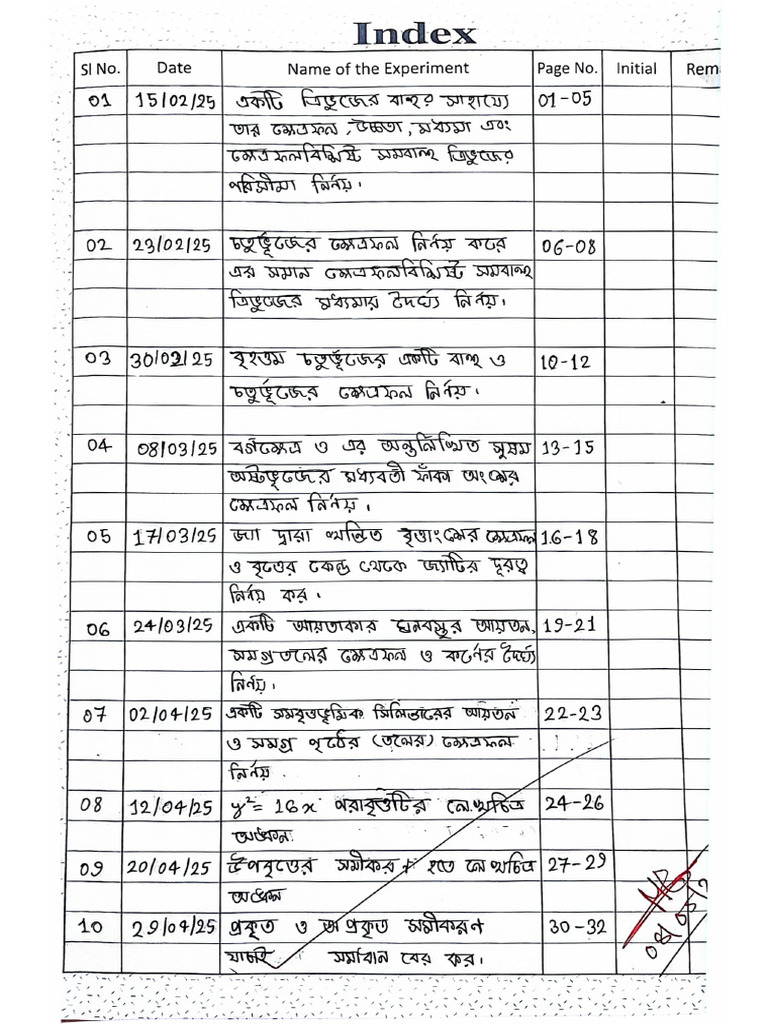 Index
Sl No. Date Name of the Experiment Page No. Initial Rem
01 15/02/25 একটি ত্রিভুজের বাহুর সাহায্যে 01-05
তার ক্ষেত্রফল, উচ্চতা, মধ্যমা এবং
ক্ষেত্রফলবিশিষ্ট সমবাহু ত্রিভুজের
পরিসীমা নির্নয়।
02 23/02/25 চতুর্ভূজের ক্ষেত্রফল নির্নয় করে 06-08
এর সমান ক্ষেত্রফলবিশিষ্ট সমবাহু
ত্রিভুজের মধ্যমার দৈর্ঘ্য নির্নয়।
03 30/02/25 বৃহত্তম চতুর্ভূজের একটি বাহু ও 10-12
চতুর্ভূজের ক্ষেত্রফল নির্নয়।
04 08/03/25 বর্গক্ষেত্র ও এর অন্তর্লিখিত সুষম 13-15
অষ্টভূজের মধ্যবর্তী ফাঁকা অংশের
ক্ষেত্রফল নির্নয়।
05 17/03/25 জ্যা দ্বারা খন্ডিত বৃত্তাংশের ক্ষেত্রফল 16-18
ও বৃত্তের কেন্দ্র থেকে জ্যাটির দূরত্ব
নির্নয় কর।
06 24/03/25 একটি আয়তাকার ঘনবস্তুর আয়তন, 19-21
সমগ্রতলের ক্ষেত্রফল ও কর্ণের দৈর্ঘ্য
নির্নয়।
07 02/04/25 একটি সমবৃত্তভূমিক সিলিন্ডারের আয়তন 22-23
ও সমগ্র পৃষ্ঠের (তলের) ক্ষেত্রফল
নির্নয়
08 12/04/25 y²= 16x পরাবৃত্তটির লেখচিত্র 24-26
অঙ্কন
09 20/04/25 উপবৃত্তের সমীকরণ হতে লেখচিত্র 27-29
অঙ্কন
10 29/04/25 প্রকৃত ও অপ্রকৃত সমীকরণ 30-32
যাচাই সমাধান বের কর।